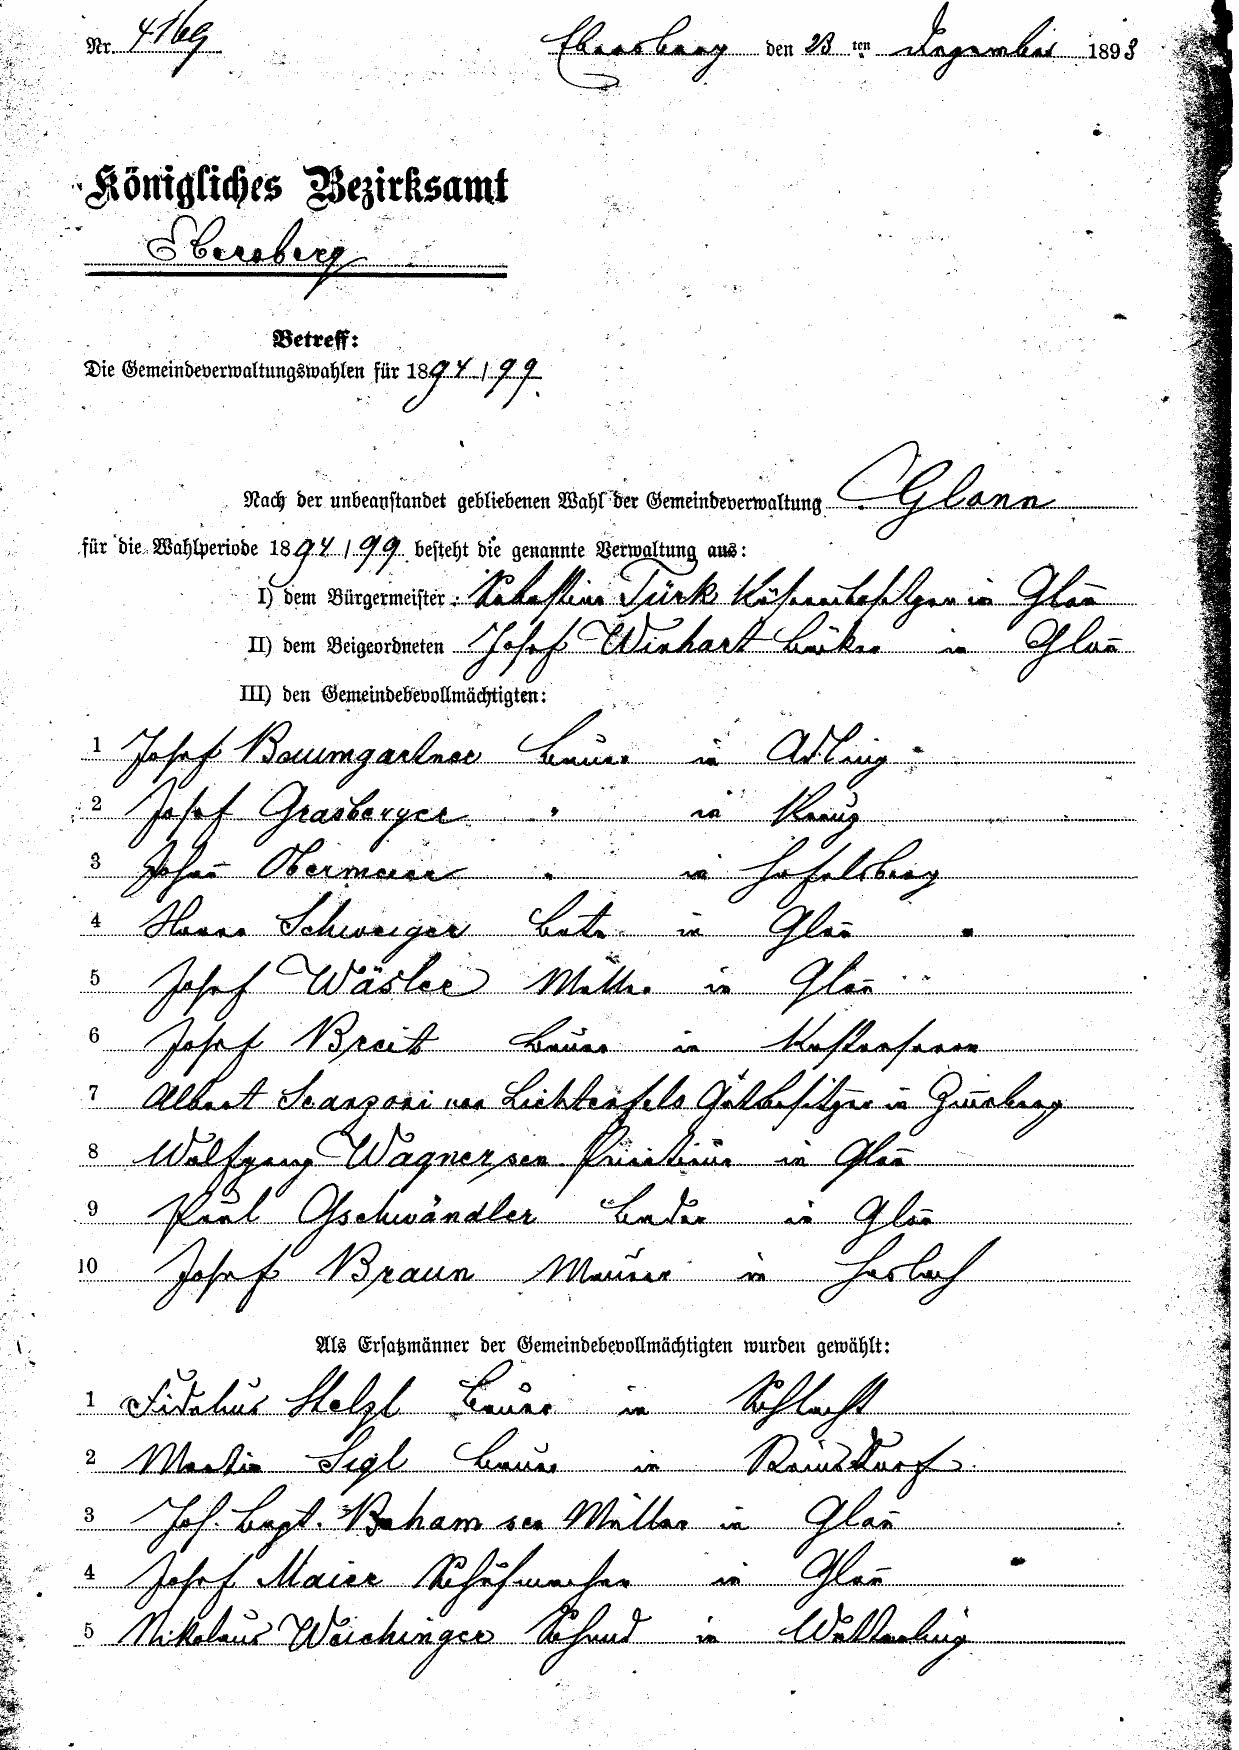 Nr. 4169 Ebersberg den 23 ten Dezember 1893
Königliches Bezirksamt
Ebersberg
Betreff:
Die Gemeindeverwaltungswahlen für 1894/99.
Nach der unbeanstandet gebliebenen Wahl der Gemeindeverwaltung Glonn
für die Wahlperiode 1894/99 besteht die genannte Verwaltung aus:
I) dem Bürgermeister: Sebastian Türk in Glon̄
II) dem Beigeordneten Josef Winhart Bäcker in Glon̄
III) den Gemeindebevollmächtigten:
1 Josef Baumgartner Bauer in Adling
2 Josef Grasberger " in Kreuz
3 Johan̄ Obermeier " in Hafelsberg
4 Schweiger in Glon̄
5 Josef Wäsler Müller in Glon̄
6 Josef Breit Bauer in Kastenseeon
7 Albert Scanzoni von Lichtenfels Gutsbesitzer in Zinneberg
8 Wolfgang Wagner sen Privatier in Glon̄
9 Paul Gschwändler Bader in Glon̄
10 Josef Braun Maurer in Haslach
Als Ersatzmänner der Gemeindebevollmächtigten wurden gewählt:
1 Fidelius Stelzl Bauer in Schlacht
2 Martin Sigl Bauer in Reinsdorf
3 Joh. Bapt. Beham sen Müller in Glon̄
4 Josef Maier Schuhmacher in Glon̄
5 Nikolaus Weichinger Schmid in Wetterling